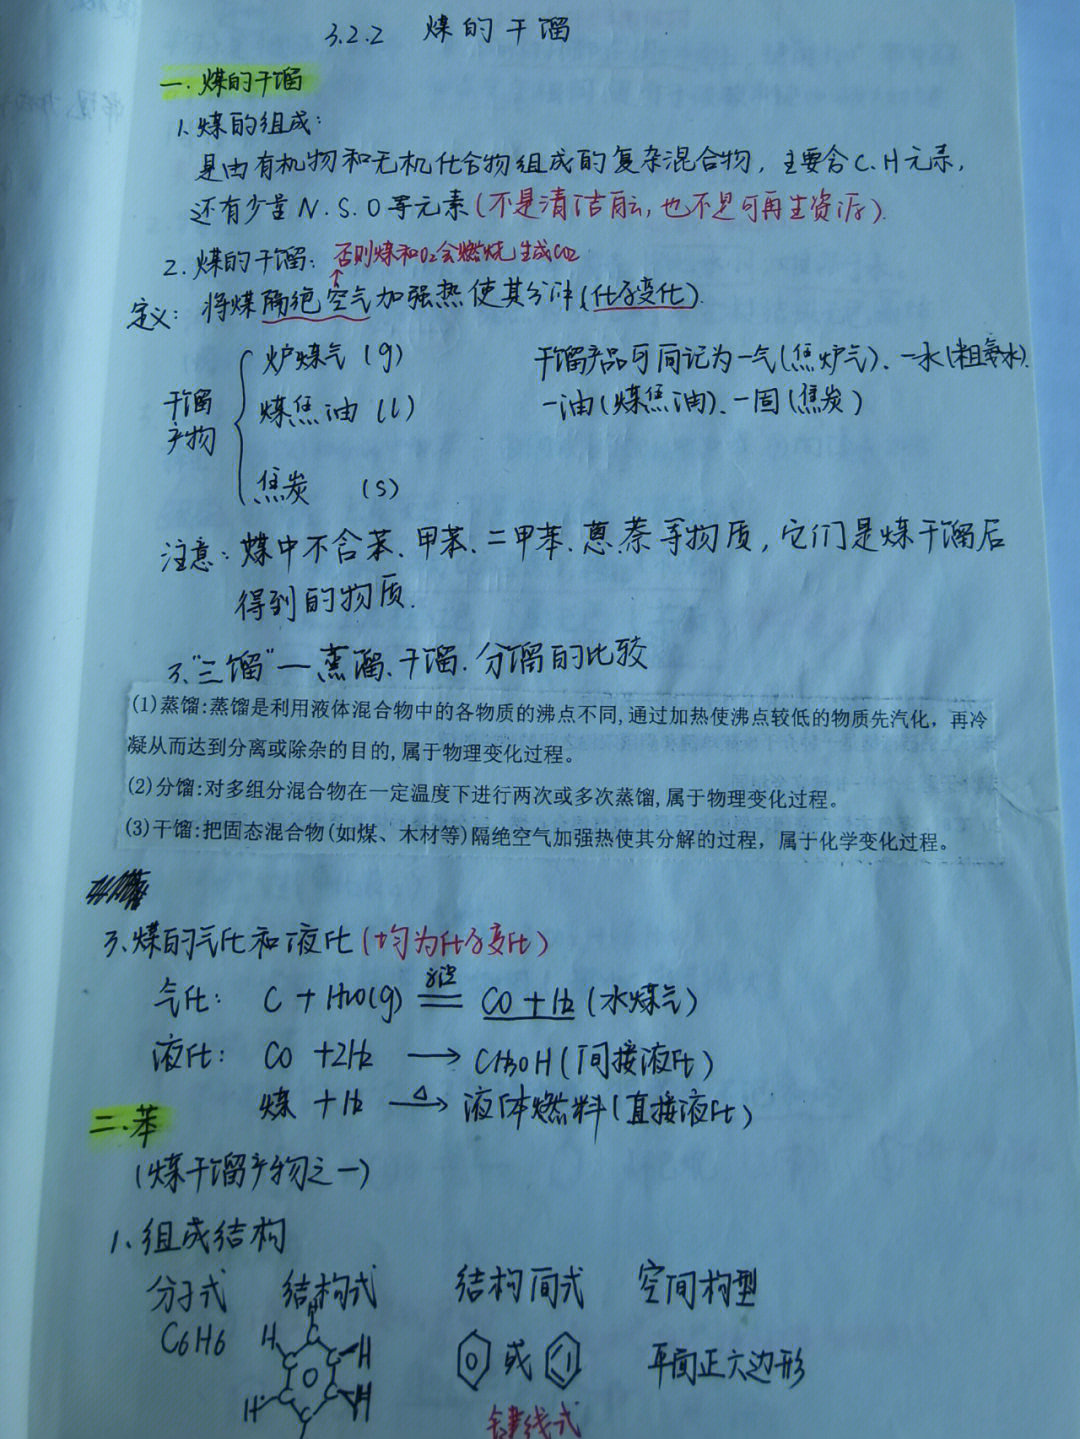 3.2.2 煤的干馏
一.煤的干馏
1.煤的组成:
是由有机物和无机化合物组成的复杂混合物,主要含C.H元素,
还有少量N.S.O等元素(不是清洁能源,也不是可再生资源).
2.煤的干馏: 否则煤和O2会燃烧生成CO2
定义: 将煤隔绝空气加强热使其分解(化学变化).
干馏产物
炉煤气(g)
煤焦油(l)
焦炭 (s)
干馏产品可简记为一气(焦炉气)、一水(粗氨水).
一油(煤焦油)、一固(焦炭)
注意: 煤中不含苯、甲苯、二甲苯、蒽.萘等物质,它们是煤干馏后
得到的物质.
3."三馏"—蒸馏、干馏.分馏的比较
(1)蒸馏:蒸馏是利用液体混合物中的各物质的沸点不同,通过加热使沸点较低的物质先汽化,再冷
凝从而达到分离或除杂的目的,属于物理变化过程。
(2)分馏:对多组分混合物在一定温度下进行两次或多次蒸馏,属于物理变化过程。
(3)干馏:把固态混合物(如煤、木材等)隔绝空气加强热使其分解的过程,属于化学变化过程。
3、煤的气化和液化(均为化学变化)
气化: C + H2O(g) 高温 CO + H2 (水煤气)
液化: CO +2H2 → CH3OH (间接液化)
煤 + H2 △→ 液体燃料(直接液化)
二.苯
(煤干馏产物之一)
1、组成结构
分子式 结构式 结构简式 空间构型
C6H6 或 平面正六边形
键线式